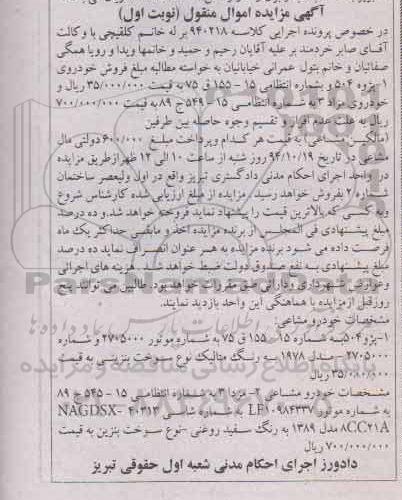 آگهی مزایده اموال منقول (نوبت اول)
در خصوص پرونده اجرایی کلاسه ۹۴۰۲۱۸ برله خانم کلقیچی با وکالت
آقای صابر خردمند بر علیه آقایان رحیم و حمید و خانمها ویدا و رویا همگی
صفائیان و خانم بتول عمرانی خیابانیان به خواسته مطالبه مبلغ فروش خودروی
۱-پژوه ۵۰۴ و بشماره انتظامی ۱۵ - ۱۵۵ ق ۷۵ به قیمت ۳۵/۰۰۰/۰۰۰ ریال و
خودروی مزدا ۳ به شماره انتظامی ۱۵ - ۵۴۹ ج ۸۹ به قیمت ۷۰۰/۰۰۰/۰۰۰
ریال به علت عدم افراز و تقسیم وجوه حاصله بین طرفین
(مالکین مشاعی) به قیمت هر کدام و پرداخت مبلغ ۶۰۰/۰۰۰ دولتی مال
مشاعی در تاریخ ۹۴/۱۰/۱۹ روز شنبه از ساعت ۱۰ الی ۱۲ ظهر ازطریق مزایده
در واحد اجرای احکام مدنی دادگستری تبریز واقع در اول ولیعصر ساختمان
شماره ۲ بفروش خواهد رسید . مزایده از مبلغ ارزیابی شده کارشناس شروع
و به کسی که بالاترین قیمت را پیشنهاد نماید فروخته خواهد شد.و ده درصد
مبلغ پیشنهادی فی المجلس از برنده مزایده اخذ و مابقی حداکثر یک ماه
فرصت داده می شود برنده مزایده به هر عنوان انصراف نماید ده درصد
مبلغ پیشنهادی به نفع صندوق دولت ضبط خواهد شد. هزینه های اجرائی
وعوارض شهرداری و دارائی طبق مقررات خواهد بود. طالبین می توانند پنج
روزقبل ازمزایده با هماهنگی این واحد بازدید نمایند.
مشخصات خودرو مشاعی:
۱-پژو۵۰۴به شماره ۱۵- ۱۵۵ ق ۷۵ به شماره موتور ۲۷۰۵۰۰۰ و شماره
۲۷۰۵۰۰۰ - مدل ۱۹۷۸ به رنگ متالیک نوع سوخت بنزینی به قیمت
ریال
مشخصات خودرو مشاعی ۲- مزدا ۳ به شماره انتظامی ۱۵ - ۵۴۵ ج ۸۹
به شماره موتور LF۱۰۹۸۴۳۳۷ به شماره شاسی NAGDSX- ۴۰۳۱۳
۸CC۲۱A مدل ۱۳۸۹ به رنگ سفید روغنی –نوع سوخت بنزین به قیمت
۷۰۰/۰۰۰/۰۰۰ ریال
دادورز اجرای احکام مدنی شعبه اول حقوقی تبریز